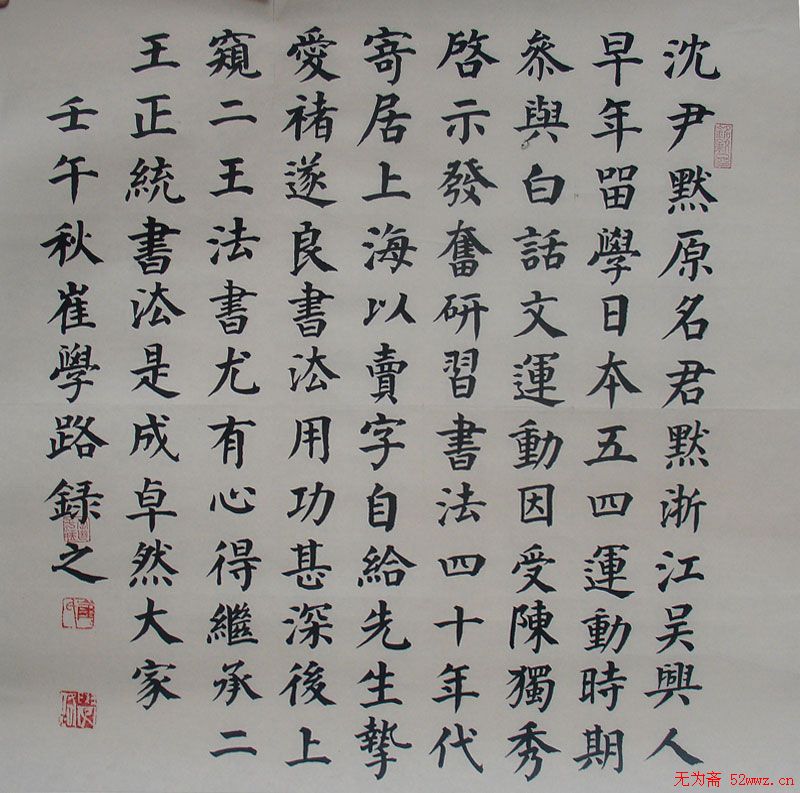 沈尹默原名君默浙江吴興人
早年留學日本五四運動時期
叅與白話文運動因受陳獨秀
啓示發奮研習書法四十年代
寄居上海以賣字自給先生摯
愛褚遂良書法用功甚深後上
窺二王法書尤有心得繼承二
王正統書法是成卓然大家
壬午秋崔學路録之
无为斋 52wwz.cn